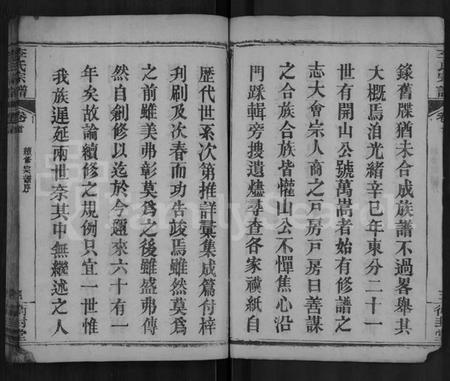 錄舊牒猶未合成族譜不過畧舉其
大概焉洎光緒辛巳年東分二十一
世有開山公號萬嵩者始有修譜之
志大會宗人商之戸房戸房曰善謀
之合族合族皆懽山公不憚焦心沿
門踩輯旁搜遺燼尋查各家襆紙自
歷代世系次第推詳彙集成篇付梓
刋刷及次春而功告竣焉雖然莫為
之前雖美弗彰莫為之後雖盛弗傳
然自創修以迄於今𨓜來六十有一
年矣故論續修之規例只宜一世惟
我族遲延兩世奈其中無繼述之人
李氏宗譜
卷首
續修宗譜序
FamilySearch